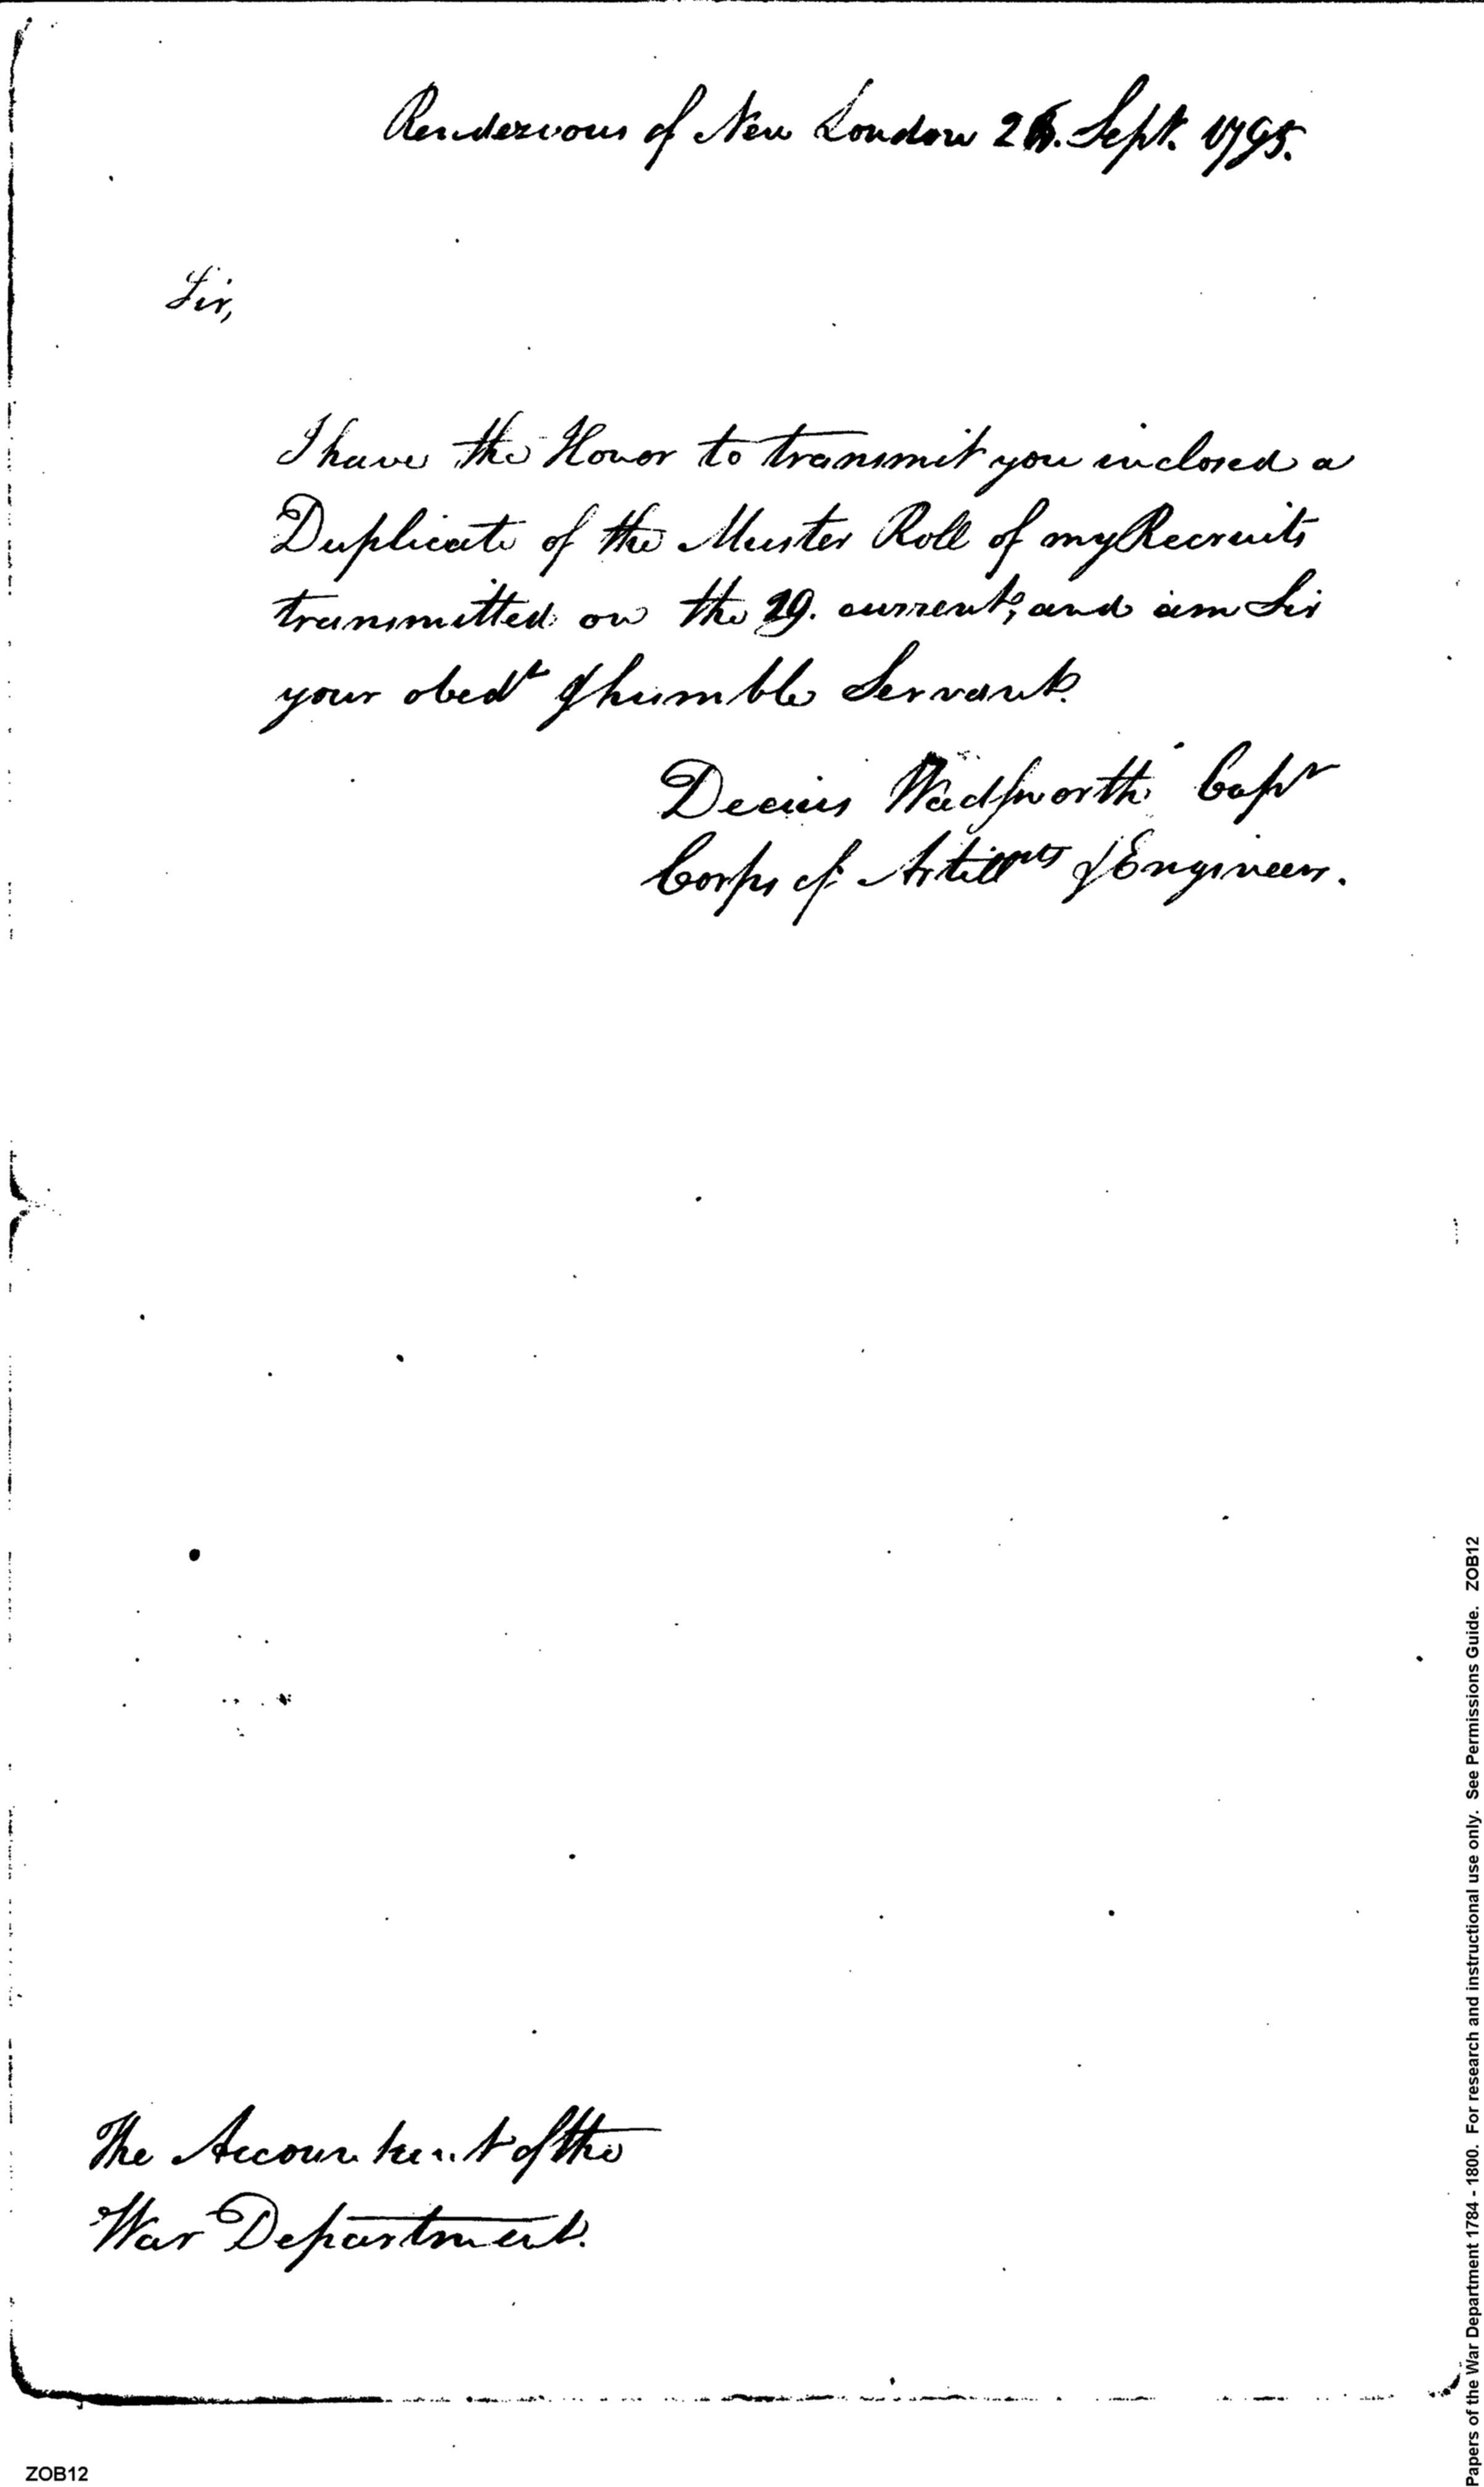 Rendezvous of New London 26. Sept. 1795.
Sir,
I have the Honor to transmit you inclosed a
Duplicate of the Muster Roll of my Recruits
transmitted on the 29. current; and am Sir
your obedt & humble Servant.
Decius Wadsworth Capt
Corps of Artillsts & Engineers.
The Accountant of the
War Department.
ZOB12
Papers of the War Department 1784 - 1800. For research and instructional use only. See Permissions Guide. ZOB12